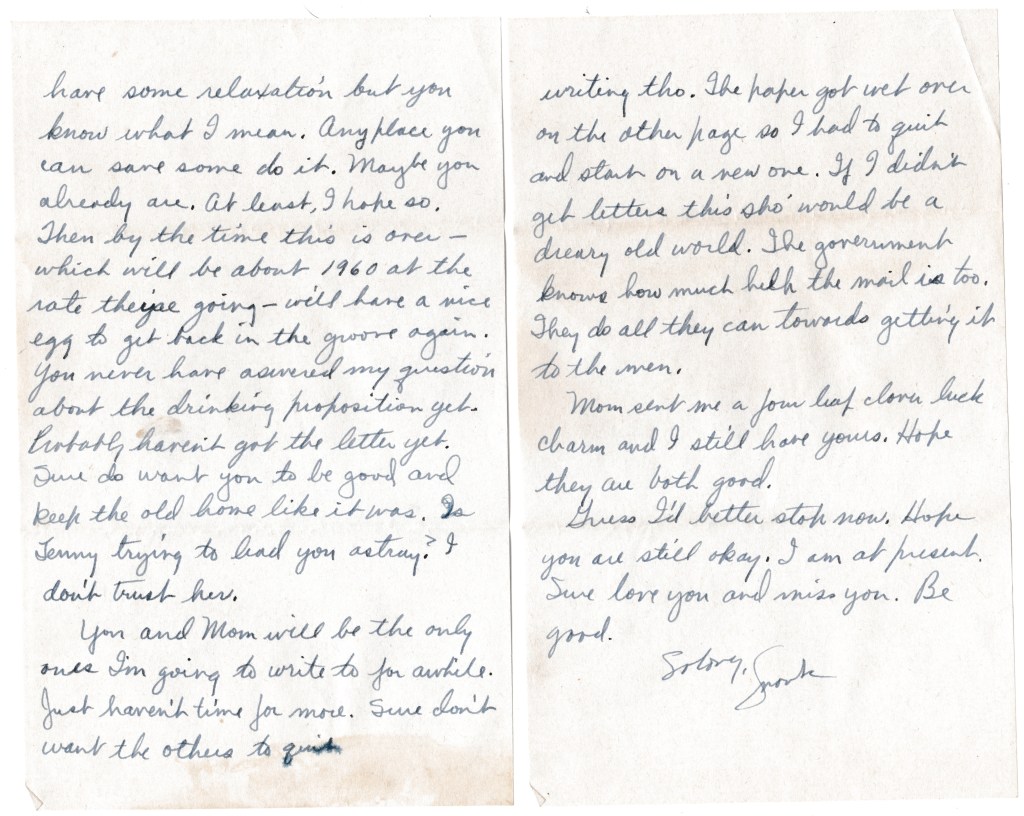 have some relaxation but you
know what I mean. Anyplace you
can save some do it. Maybe you
already are. At least, I hope so.
Then by the time this is over –
which will be about 1960 at the
rate going – will have a nice
egg to get back in the groove again.
You never have aswered my question
about the drinking proposition yet.
Probably haven't got the letter yet.
Sure do want you to be good and
keep the old home like it was. Is
Jenny trying to lead you astray? I
don't trust her.
You and Mom will be the only
ones I'm going to write to for awhile.
Just haven't time for more. Sure don't
want the others to quit
writing tho. The paper got wet over
on the other page so I had to quit
and start on a new one. If I didn't
get letters this sho' would be a
dreary old world. The government
knows how much help the mail is too.
They do all they can towards getting it
to the men.
Mom sent me a four leaf clover luck
charm and I still have yours. Hope
they are both good.
Guess I'd better stop now. Hope
you are still okay. I am at present.
Sure love you and miss you. Be
good.